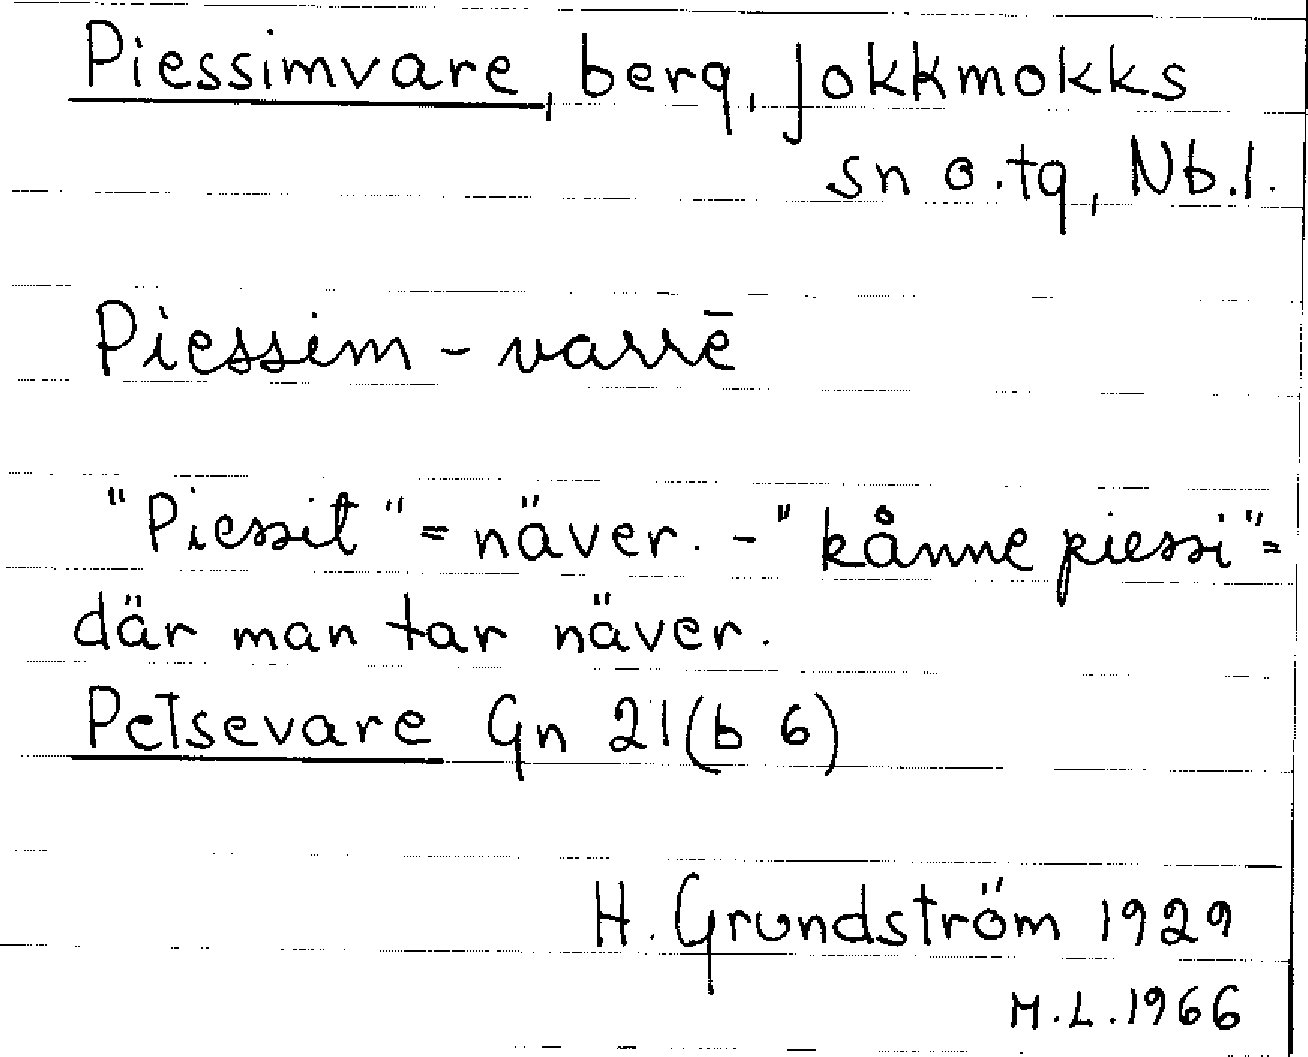 Piessimvare, berg, Jokkmokks
sn o.tg, Nb.l.
Piessim - varrē
"Piessit" = näver. - "kånne piessi" =
där man tar näver.
Petsevare Gn 21(b 6)
H. Grundström 1929
M.L.1966